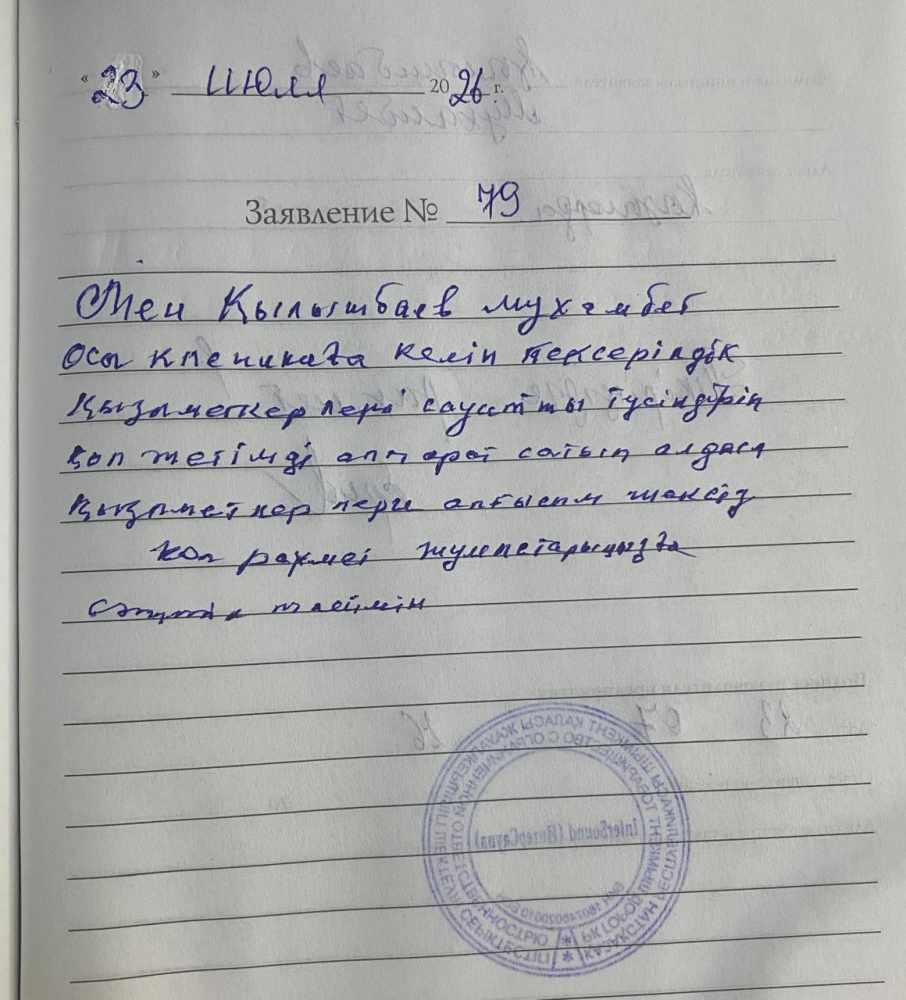 « 23 » июля 2026 г.
Заявление № 79
Мен Қылышбаев Мухамбет
Осы клиникаға келіп тексерілдік
Қызметкерлері сауатты түсіндіріп
қол жетімді аппарат сатып алдым
Қызметкерлерге алғысым шексіз
Көп рахмет жұмыстарыңызға
сәттілік тілеймін
InterSound (ИнтерСаунд)